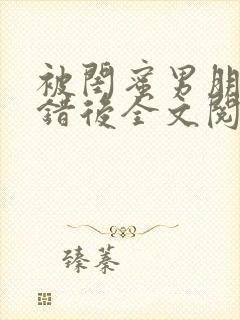 被閨蜜男朋
錯後全文閱
臻蓁